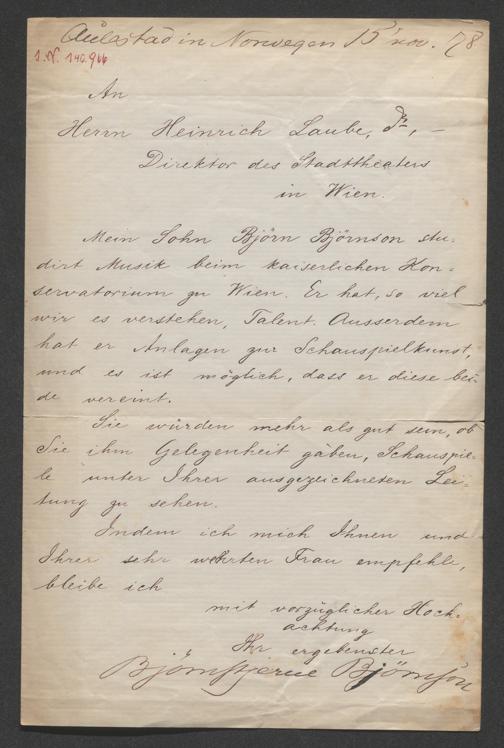 Aulestad in Norwegen 15' nov. 78
I.N. 140.966
An
Herrn Heinrich Laube, Dr, –
Direktor des Stadttheaters
in Wien.
Mein Sohn Björn Björnson stu-
dirt Musik beim kaiserlichen Kon-
servatorium zu Wien. Er hat, so viel
wir es verstehen, Talent. Ausserdem
hat er Anlagen zur Schauspielkunst,
und es ist möglich, dass er diese bei-
de vereint.
Sie würden mehr als gut sein, ob
Sie ihm Gelegenheit gäben, Schauspie-
le unter Ihrer ausgezeichneten Lei-
tung zu sehen.
Indem ich mich Ihnen und
Ihrer sehr wehrten Frau empfehle,
bleibe ich
mit vorzüglicher Hoch-
achtung
Ihr ergebenster
Björnstjerne Björnson